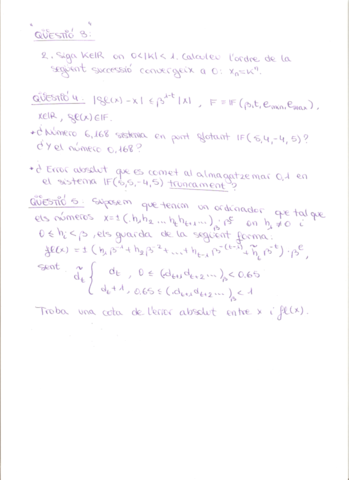 QÜESTIÓ 3:
2. Sigui K∈ℝ on 0<|K|<1. Calculeu l'ordre de la
següent successió convergeix a 0: xₙ=Kⁿ.
QÜESTIÓ 4. |fl(x)-x| ≤ β^(1-t) |x|, F = F(β,t,e_min,e_max),
x∈ℝ, fl(x)∈F.
• ¿Número 6,168 sistema en punt flotant F(5,4,-4,5)?
¿Y el número 0,168?
• ¿Error absolut que es comet al almagatzemar 0,1 en
el sistema F(5,5,-4,5) truncament?
QÜESTIÓ 5. Suposem que tenim un ordinador que tal que
els números x=±(h₁h₂...hₜhₜ₊₁...)_β·β^e on h₁≠0 i
0≤hᵢ<β, els guarda de la següent forma:
fl(x)=±(h₁β⁻¹+h₂β⁻²+...+hₜ₋₁β^-(t-1)+h̃ₜβ^-t)·β^e,
sent d̃ₜ { dₜ, 0≤(.dₜ₊₁dₜ₊₂...)_β<0.65
dₜ+1, 0.65≤(.dₜ₊₁dₜ₊₂...)_β<1
Troba una cota de l'error absolut entre x i fl(x).